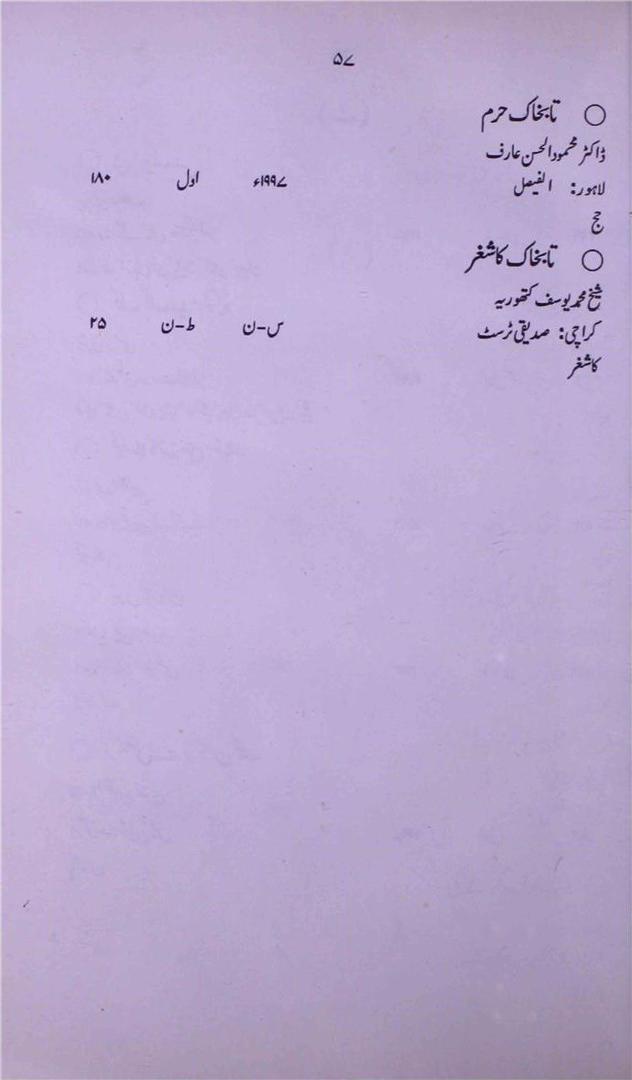 ۵۷
○ تابخاک حرم
ڈاکٹر محمود الحسن عارف
لاہور: الفیصل ۱۹۹۷ء اول ۱۸۰
حج
○ تابخاک کاشغر
شیخ محمد یوسف کتھوریہ
کراچی: صدیقی ٹرسٹ س-ن ط-ن ۲۵
کاشغر